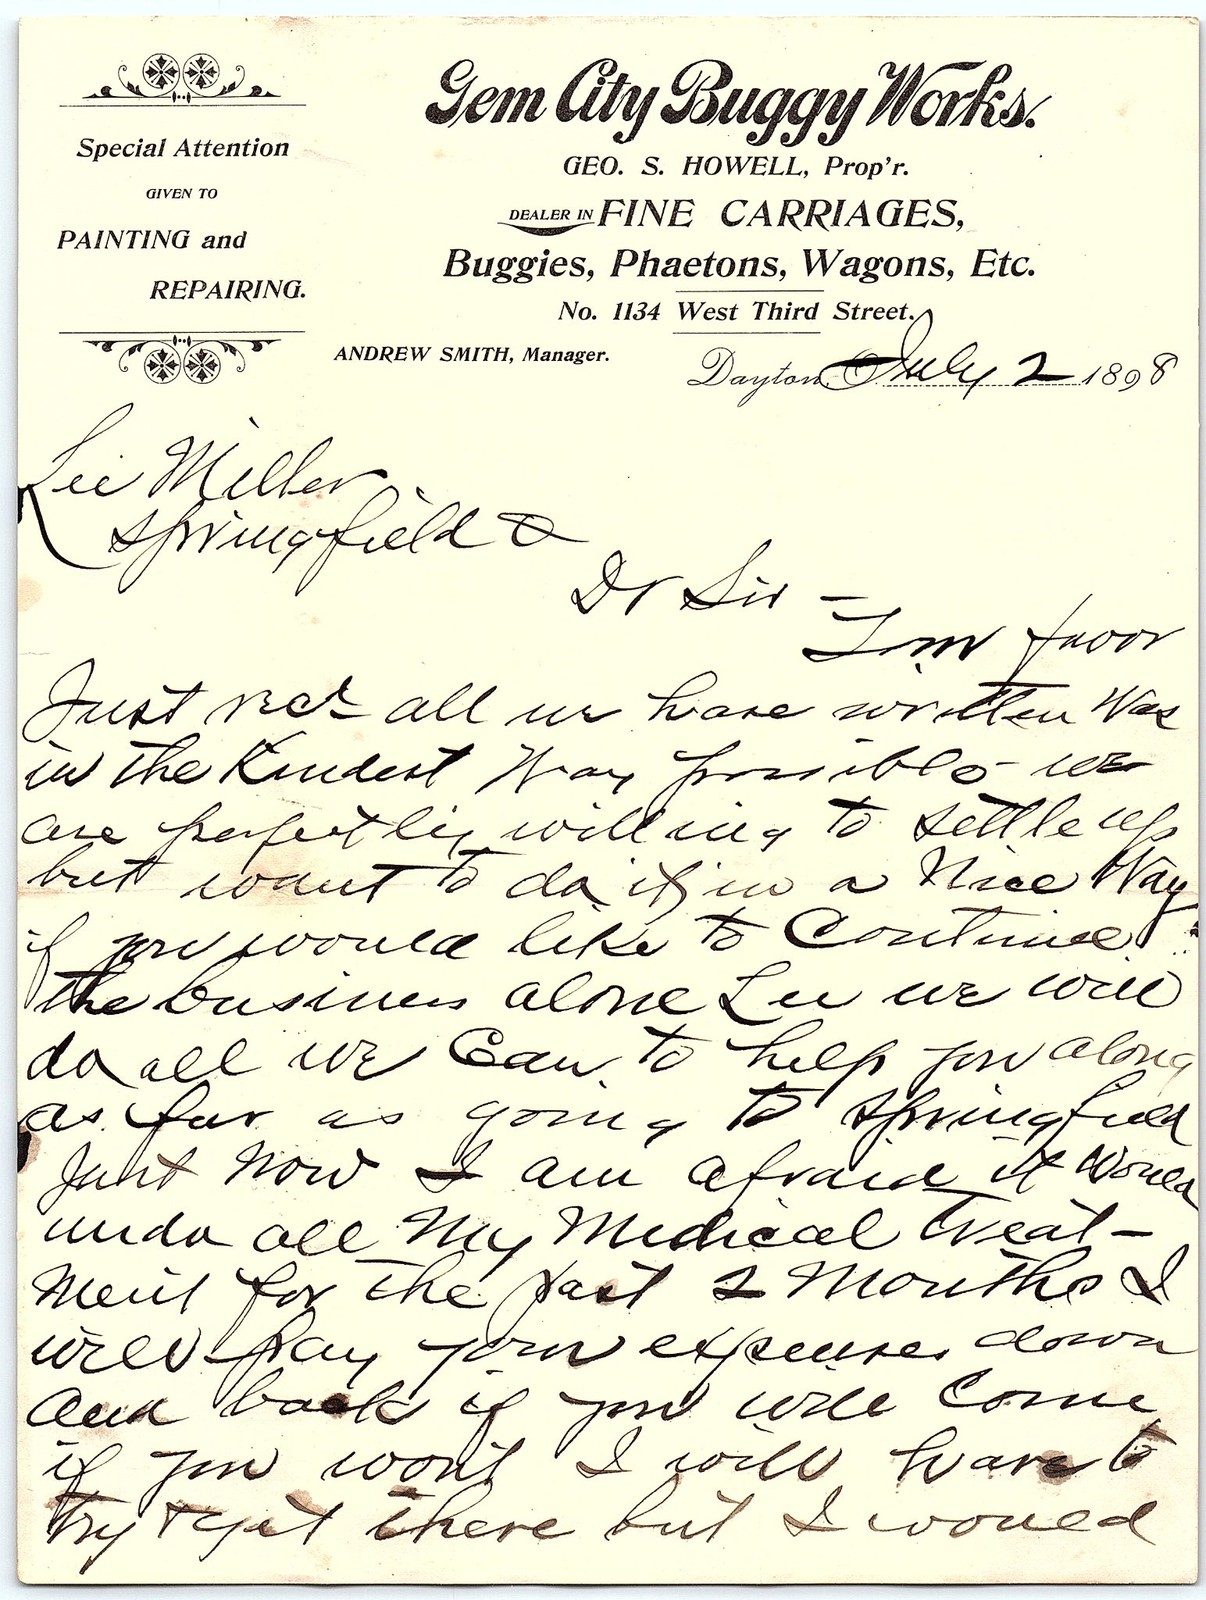 Special Attention
GIVEN TO
PAINTING and
REPAIRING.
Gem City Buggy Works.
GEO. S. HOWELL, Prop'r.
DEALER IN FINE CARRIAGES,
Buggies, Phaetons, Wagons, Etc.
No. 1134 West Third Street.
ANDREW SMITH, Manager.
Dayton, O. July 2 1898
Lee Miller
Springfield O
Dr Sir –
Your favor
Just recd all we have written was
in the Kindest Way possible we
are perfectly willing to settle up
but want to do it in a Nice Way
if you would like to Continue
the business alone Lee we will
do all we Can to help you along
as far as going to Springfield
Just Now I am afraid it would
undo all My Medical Treat-
ment for the past 2 Months I
will pay your expenses down
and back if you will Come
if you wont I will have to
try & get there but I would